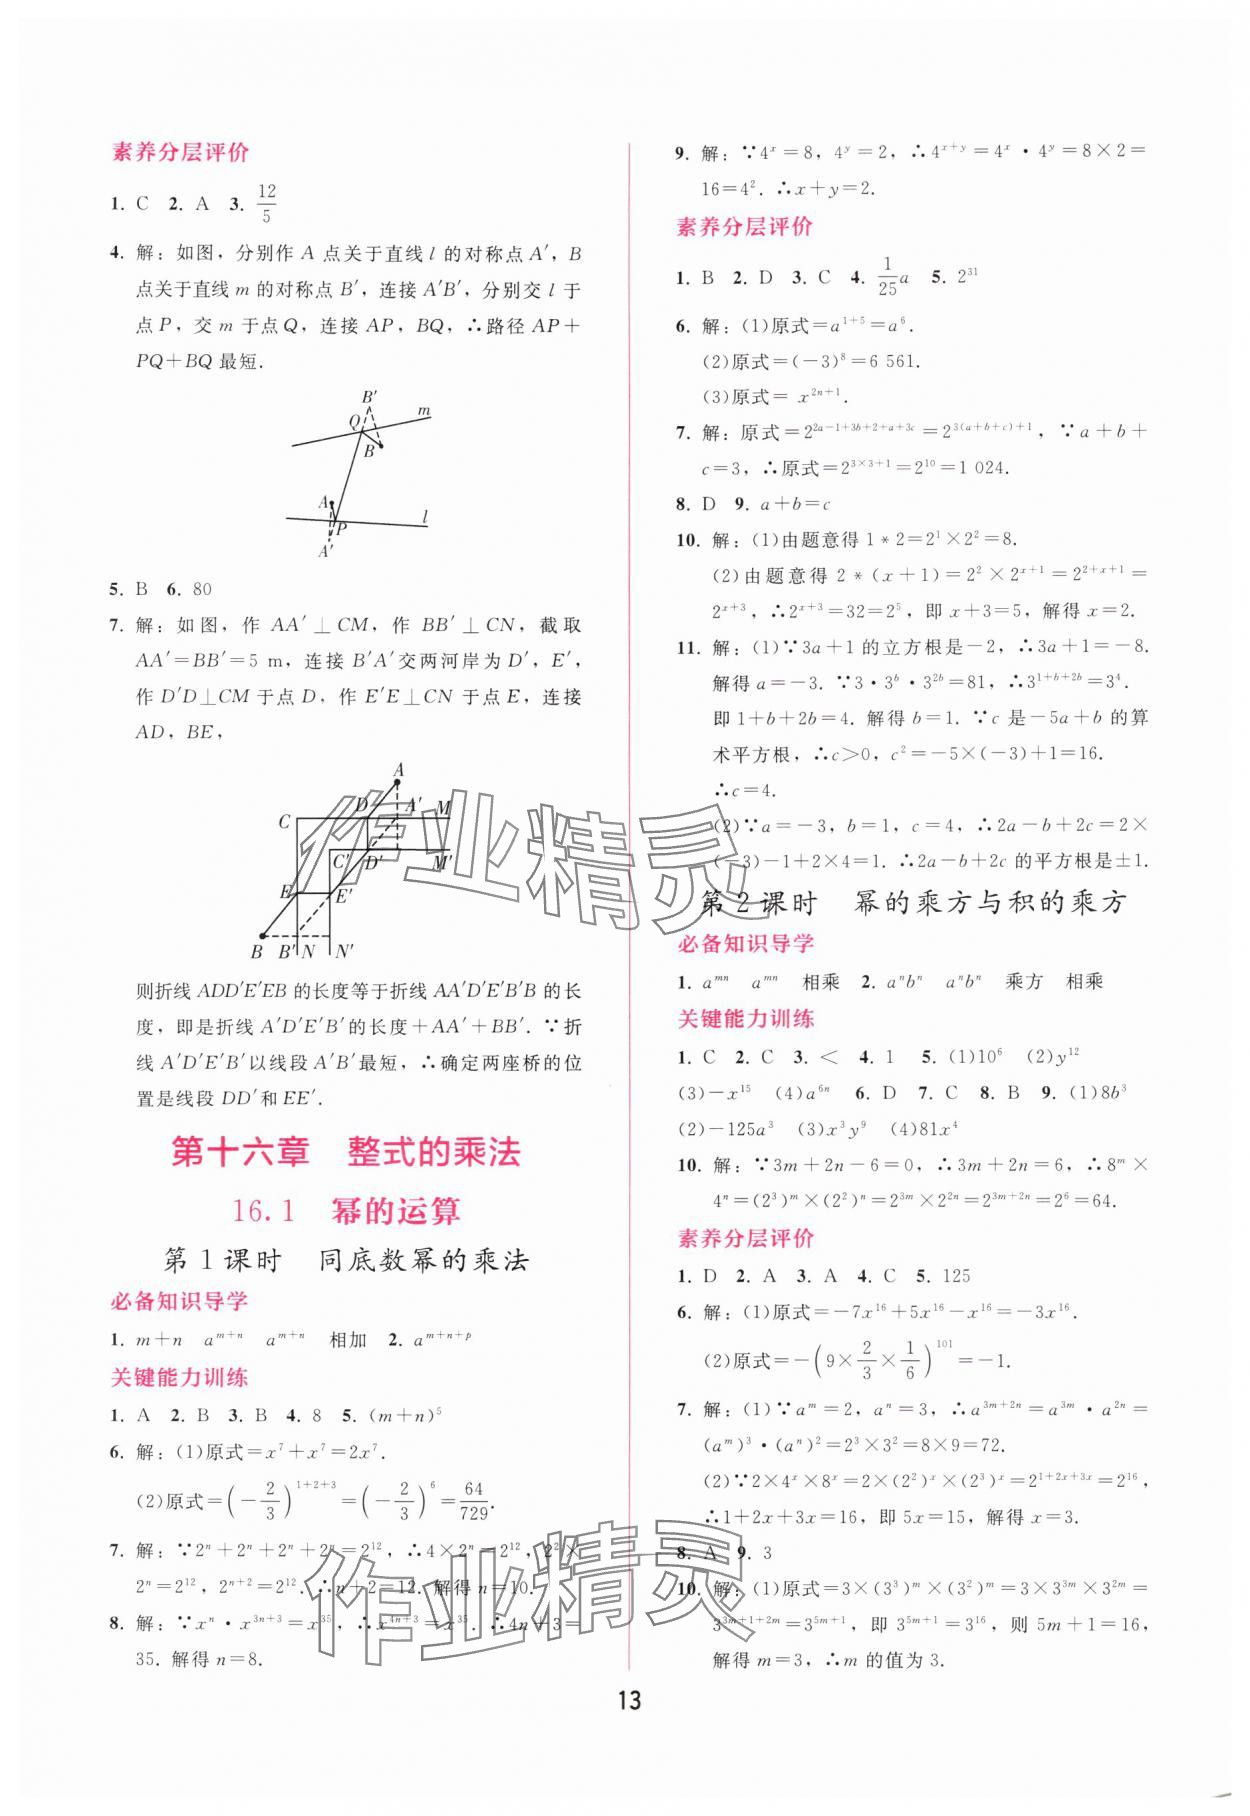 素养分层评价
1. C 2. A 3. 12/5
4. 解：如图，分别作 A 点关于直线 l 的对称点 A′，B
点关于直线 m 的对称点 B′，连接 A′B′，分别交 l 于
点 P，交 m 于点 Q，连接 AP，BQ，∴路径 AP＋
PQ＋BQ 最短.
B′
m
Q
B
A
P
l
A′
5. B 6. 80
7. 解：如图，作 AA′⊥CM，作 BB′⊥CN，截取
AA′＝BB′＝5 m，连接 B′A′交两河岸为 D′，E′，
作 D′D⊥CM 于点 D，作 E′E⊥CN 于点 E，连接
AD，BE，
A
C D A′ M
C′ D′ M′
E E′
B B′ N N′
则折线 ADD′E′EB 的长度等于折线 AA′D′E′B′B 的长
度，即是折线 A′D′E′B′的长度＋AA′＋BB′. ∵折
线 A′D′E′B′以线段 A′B′最短，∴确定两座桥的位
置是线段 DD′和 EE′.
第十六章 整式的乘法
16.1 幂的运算
第 1 课时 同底数幂的乘法
必备知识导学
1. m＋n a^{m＋n} a^{m＋n} 相加 2. a^{m＋n＋p}
关键能力训练
1. A 2. B 3. B 4. 8 5. (m＋n)^5
6. 解：(1)原式＝x^7＋x^7＝2x^7.
(2)原式＝(－2/3)^{1＋2＋3}＝(－2/3)^6＝64/729.
7. 解：∵2^n＋2^n＋2^n＋2^n＝2^{12}，∴4×2^n＝2^{12}，2^2×
2^n＝2^{12}，2^{n＋2}＝2^{12}. ∴n＋2＝12. 解得 n＝10.
8. 解：∵x^n·x^{3n＋3}＝x^{35}，∴x^{4n＋3}＝x^{35}. ∴4n＋3＝
35. 解得 n＝8.
9. 解：∵4^x＝8，4^y＝2，∴4^{x＋y}＝4^x·4^y＝8×2＝
16＝4^2. ∴x＋y＝2.
素养分层评价
1. B 2. D 3. C 4. 1/25 a 5. 2^{31}
6. 解：(1)原式＝a^{1＋5}＝a^6.
(2)原式＝(－3)^8＝6 561.
(3)原式＝ x^{2n＋1}.
7. 解：原式＝2^{2a－1＋3b＋2＋a＋3c}＝2^{3(a＋b＋c)＋1}，∵a＋b＋
c＝3，∴原式＝2^{3×3＋1}＝2^{10}＝1 024.
8. D 9. a＋b＝c
10. 解：(1)由题意得 1＊2＝2^1×2^2＝8.
(2)由题意得 2＊(x＋1)＝2^2×2^{x＋1}＝2^{2＋x＋1}＝
2^{x＋3}，∴2^{x＋3}＝32＝2^5，即 x＋3＝5，解得 x＝2.
11. 解：(1)∵3a＋1 的立方根是－2，∴3a＋1＝－8.
解得 a＝－3. ∵3·3^b·3^{2b}＝81，∴3^{1＋b＋2b}＝3^4.
即 1＋b＋2b＝4. 解得 b＝1. ∵c 是－5a＋b 的算
术平方根，∴c＞0，c^2＝－5×(－3)＋1＝16.
∴c＝4.
(2)∵a＝－3，b＝1，c＝4，∴2a－b＋2c＝2×
(－3)－1＋2×4＝1. ∴2a－b＋2c 的平方根是±1.
第 2 课时 幂的乘方与积的乘方
必备知识导学
1. a^{mn} a^{mn} 相乘 2. a^nb^n a^nb^n 乘方 相乘
关键能力训练
1. C 2. C 3. ＜ 4. 1 5. (1)10^6 (2)y^{12}
(3)－x^{15} (4)a^{6n} 6. D 7. C 8. B 9. (1)8b^3
(2)－125a^3 (3)x^3y^9 (4)81x^4
10. 解：∵3m＋2n－6＝0，∴3m＋2n＝6，∴8^m×
4^n＝(2^3)^m×(2^2)^n＝2^{3m}×2^{2n}＝2^{3m＋2n}＝2^6＝64.
素养分层评价
1. D 2. A 3. A 4. C 5. 125
6. 解：(1)原式＝－7x^{16}＋5x^{16}－x^{16}＝－3x^{16}.
(2)原式＝－(9×2/3×1/6)^{101}＝－1.
7. 解：(1)∵a^m＝2，a^n＝3，∴a^{3m＋2n}＝a^{3m}·a^{2n}＝
(a^m)^3·(a^n)^2＝2^3×3^2＝8×9＝72.
(2)∵2×4^x×8^x＝2×(2^2)^x×(2^3)^x＝2^{1＋2x＋3x}＝2^{16}，
∴1＋2x＋3x＝16，即 5x＝15，解得 x＝3.
8. A 9. 3
10. 解：(1)原式＝3×(3^3)^m×(3^2)^m＝3×3^{3m}×3^{2m}＝
3^{3m＋1＋2m}＝3^{5m＋1}，即 3^{5m＋1}＝3^{16}，则 5m＋1＝16，
解得 m＝3，∴m 的值为 3.
13
作业精灵
作业精灵